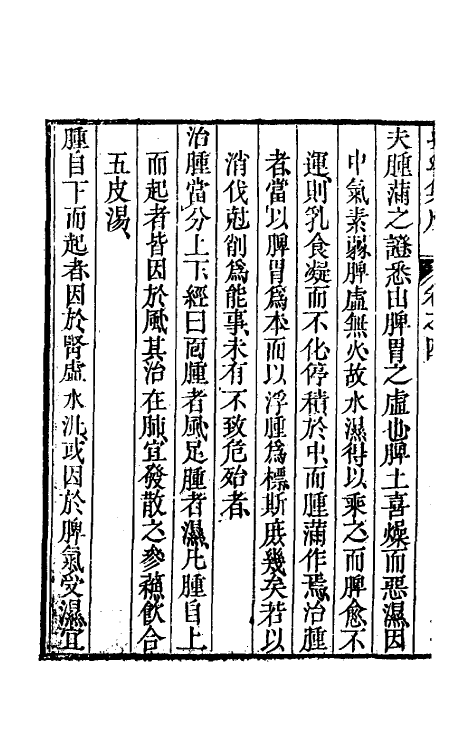 夫腫滿之證悉由脾胃之虛也脾土喜燥而惡濕因
中氣素弱脾虛無火故水濕得以乘之而脾愈不
運則乳食凝而不化停積於中而腫滿作焉治腫
者當以脾胃爲本而以浮腫爲標斯庶幾矣若以
消伐尅削爲能事未有不致危殆者
治腫當分上下經曰面腫者風足腫者濕凡腫自上
而起者皆因於風其治在肺宜發散之參蘇飲合
五皮湯
腫自下而起者因於腎虛水汎或因於脾氣受濕宜